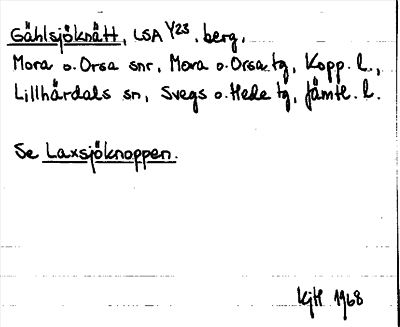 Gåhlsjöknätt, LSA Y23, berg,
Mora o. Orsa snr, Mora o. Orsa tg, Kopp. l.,
Lillhärdals sn, Svegs o. Hede tg, Jämtl. l.
Se Laxsjöknoppen.
KjH 1968